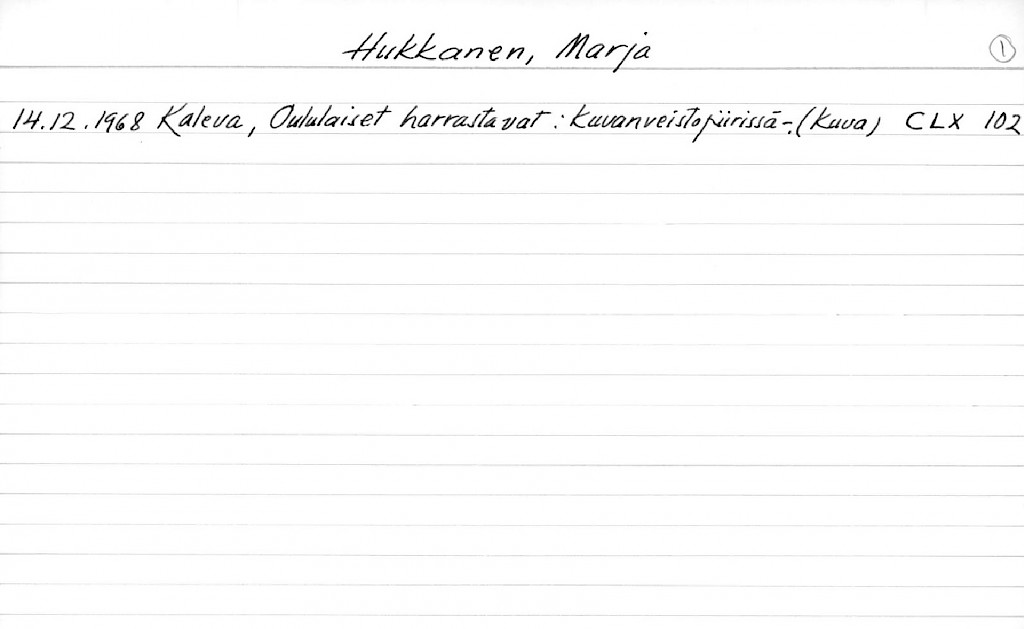 Hukkanen, Marja ①
14.12.1968 Kaleva, Oululaiset harrastavat : Kuvanveistopiirissä-. (Kuva) CLX 102